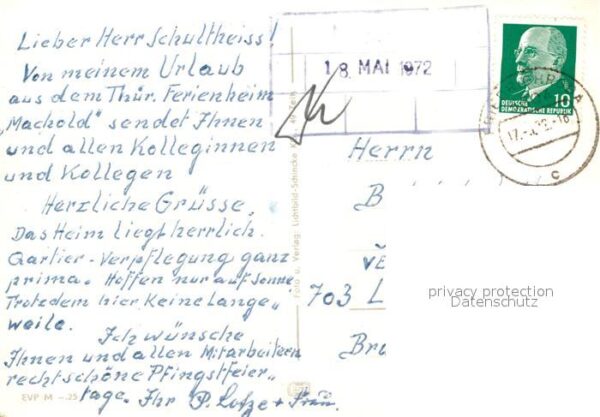 Lieber Herr Schultheiss!
Von meinem Urlaub
aus dem Thür. Ferienheim
„Machold" sendet Ihnen
und allen Kolleginnen
und Kollegen
Herzliche Grüsse,
Das Heim liegt herrlich.
Qartier - Verpflegung ganz
prima. Hoffen nur auf Sonne
Trotzdem hier Keine Lange„
weile.
Ich wünsche
Ihnen und allen Mitarbeitern
recht schöne Pfingstfeier„
tage. Ihr P. Lotze + Frau.
EVP M -.25
Foto u. Verlag: Lichtbild-Schincke
18. MAI 1972
DEUTSCHE
DEMOKRATISCHE REPUBLIK
10
c
Herrn
B
VE
703 L
Br
privacy protection
Datenschutz